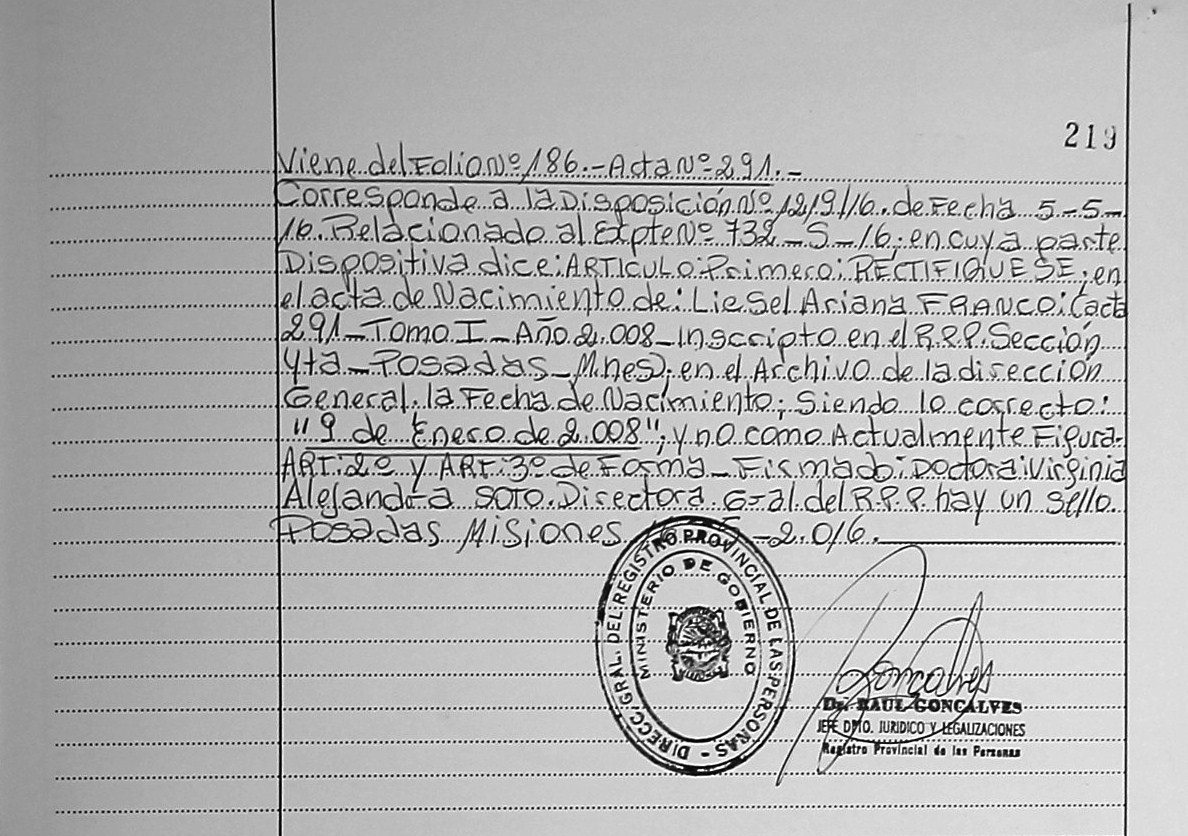 219
Viene del Folio Nº 186.-Acta Nº 291.-
Corresponde a la Disposición Nº 1219/16. de Fecha 5-5-
16. Relacionado al Expte Nº 732-S-16; en cuya parte
Dispositiva dice: ARTICULO: Primero: RECTIFIQUESE; en
el acta de Nacimiento de: LieSel Ariana FRANCO: (acta
291-TOMO I-Año 2.008-Inscripto en el R.P.P. Sección
4ta-Posadas-Mnes); en el Archivo de la dirección
General. la Fecha de Nacimiento; Siendo lo correcto:
"9 de Enero de 2.008"; y no como Actualmente Figura-
ART: 2º y ART: 3º de Forma-Firmado: Doctora: Virginia
Alejandra SOTO. Directora. G-al del R.P.P. hay un sello.
Posadas Misiones -2.016.
DIRECC. GRAL. DEL REGISTRO PROVINCIAL DE LAS PERSONAS -
MINISTERIO DE GOBIERNO
Goncalves
Dr. RAUL GONCALVES
JEFE DPTO. JURIDICO Y LEGALIZACIONES
Registro Provincial de las Personas